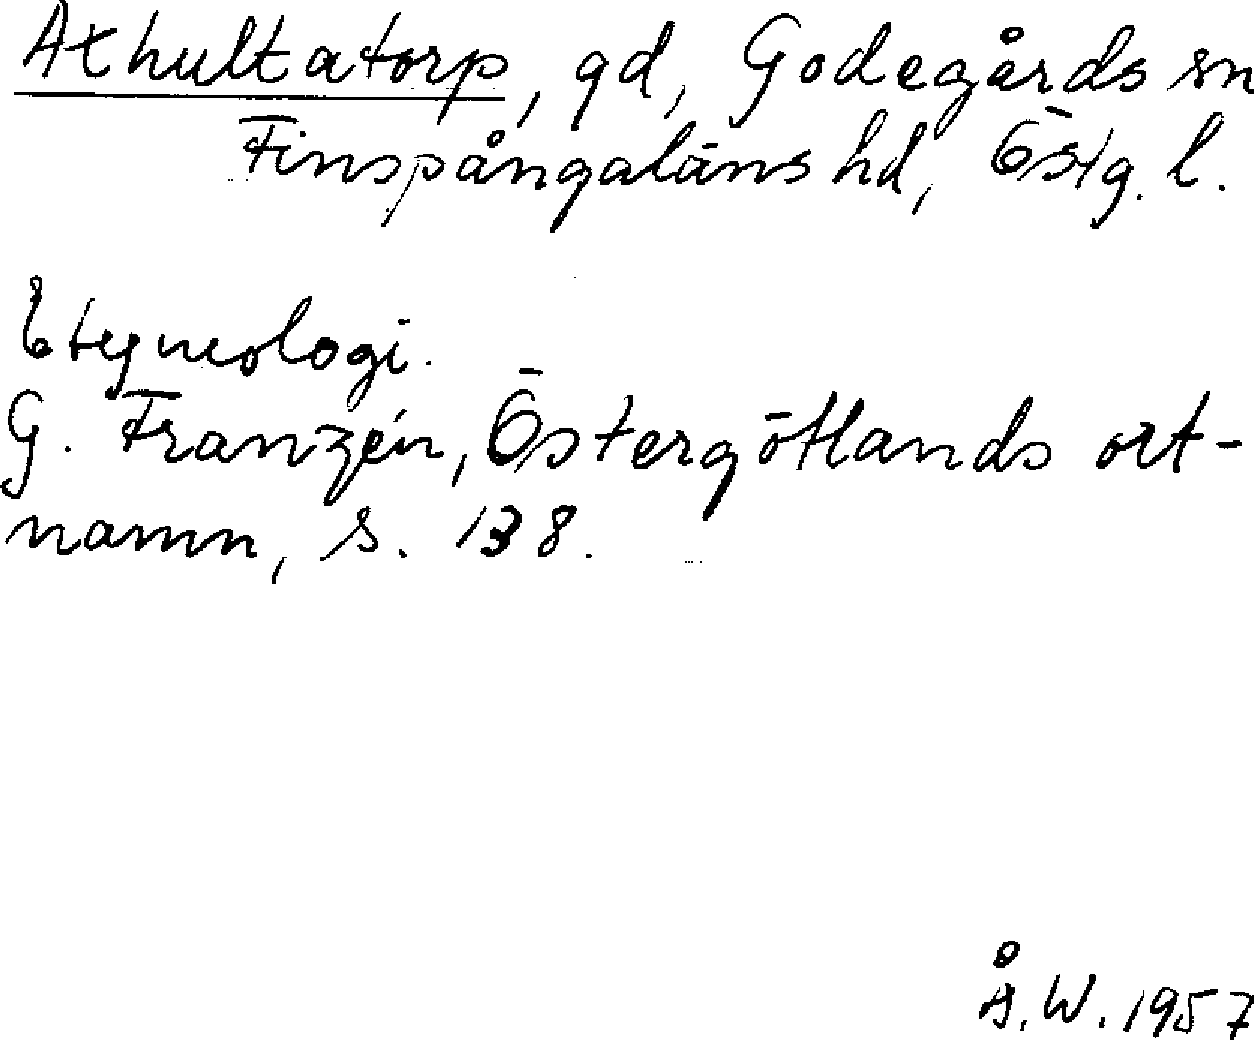 Athultatorp, gd, Godegårds sn
Finspångaläns hd, Östg. l.
Etymologi.
G. Franzén, Östergötlands ort-
namn, s. 138.
Å.W. 1957